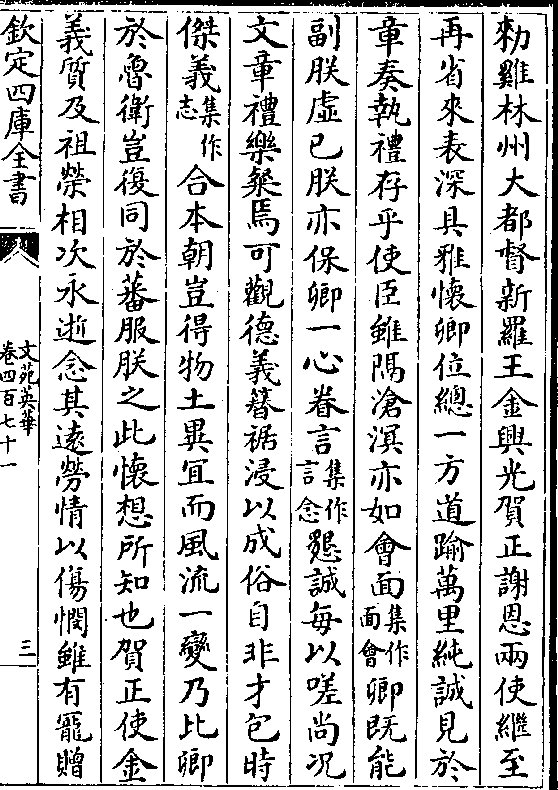 勑雞林州大都督新羅王金興光賀正謝恩兩使繼至
再省來表深具雅懷卿位總一方道踰萬里純誠見於
章奏執禮存乎使臣雖隔滄溟亦如會面集作面會卿既能
副朕虛已朕亦保卿一心眷言集作言念懇誠每以嗟尚况
文章禮樂粲焉可觀德義簪裾浸以成俗自非才包時
傑義集作志合本朝豈得物土異宜而風流一變乃比卿
於魯衛豈復同於蕃服朕之此懷想所知也賀正使金
義質及祖榮相次永逝念其遠勞情以傷憫雖有寵贈
欽定四庫全書
文苑英華
卷四百七十一
三